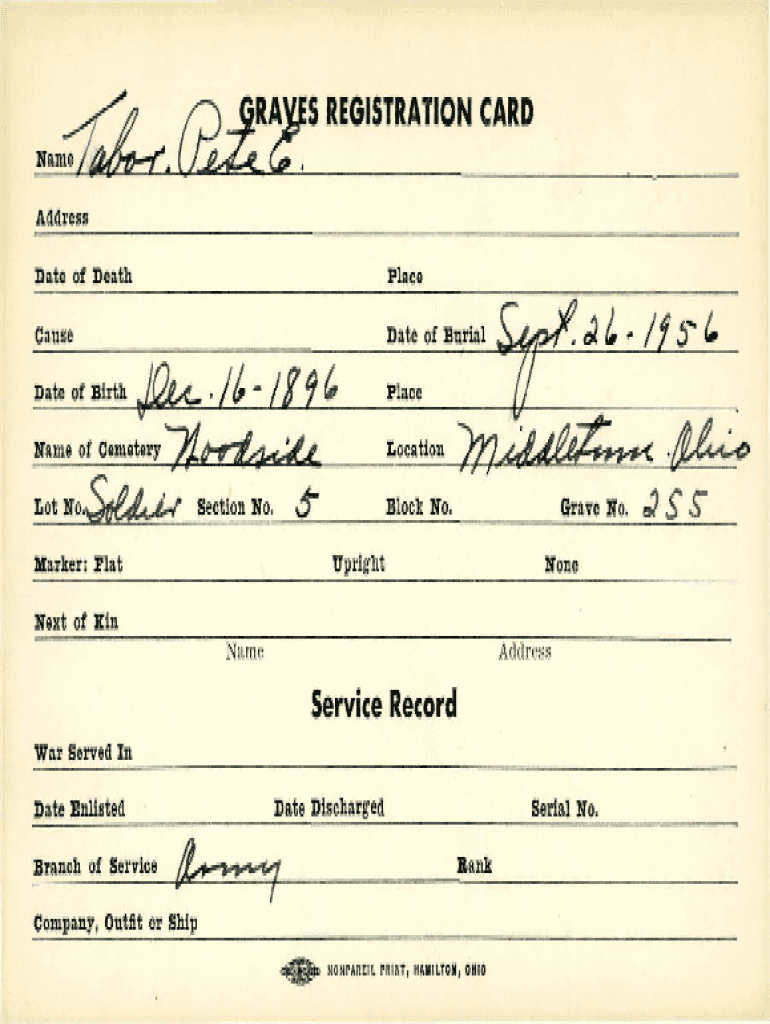 GRAVES REGISTRATION CARD
Name Tabor, Pete E.
Address
Date of Death Place
Cause Date of Burial Sept. 26-1956
Date of Birth Dec. 16-1896 Place
Name of Cemetery Woodside Location Middletown. Ohio
Lot No. Soldier Section No. 5 Block No. Grave No. 255
Marker: Flat Upright None
Next of Kin
Name Address
Service Record
War Served In
Date Enlisted Date Discharged Serial No.
Branch of Service Army Rank
Company, Outfit or Ship
NONPAREIL PRINT, HAMILTON, OHIO